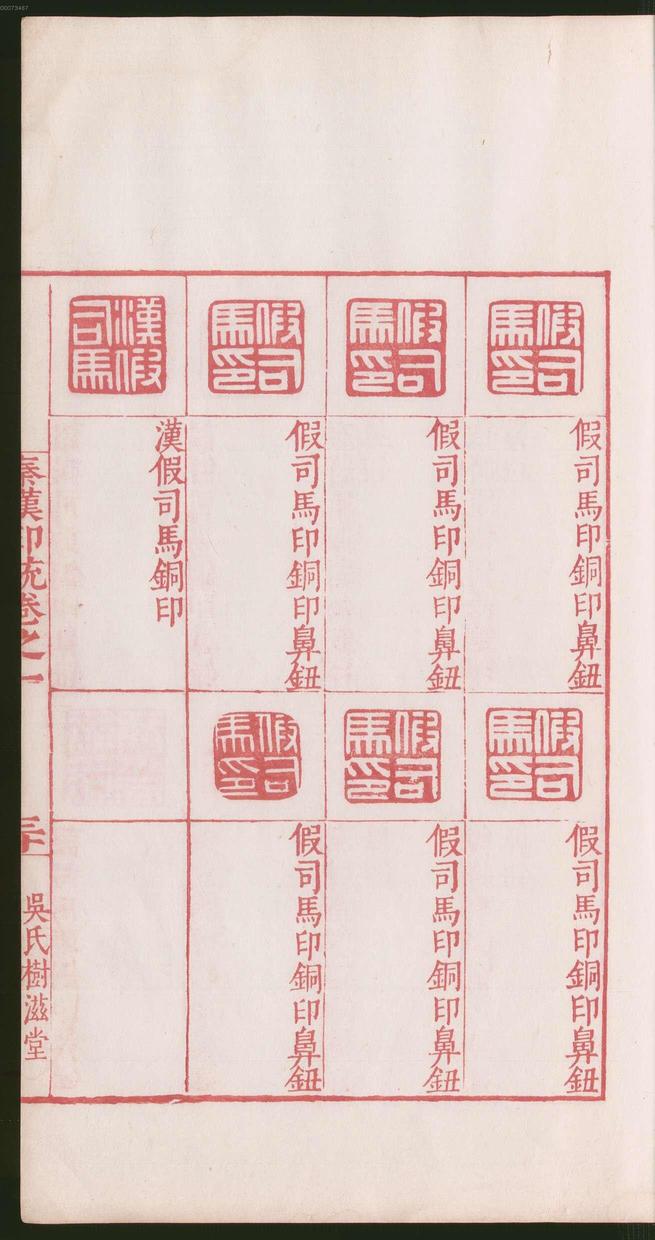 00073467
假司馬印
假司馬印銅印鼻鈕
假司馬印
假司馬印銅印鼻鈕
假司馬印
假司馬印銅印鼻鈕
漢假司馬
漢假司馬銅印
假司馬印
假司馬印銅印鼻鈕
假司馬印
假司馬印銅印鼻鈕
假司馬印
假司馬印銅印鼻鈕
秦漢印統卷之一
吳氏樹滋堂